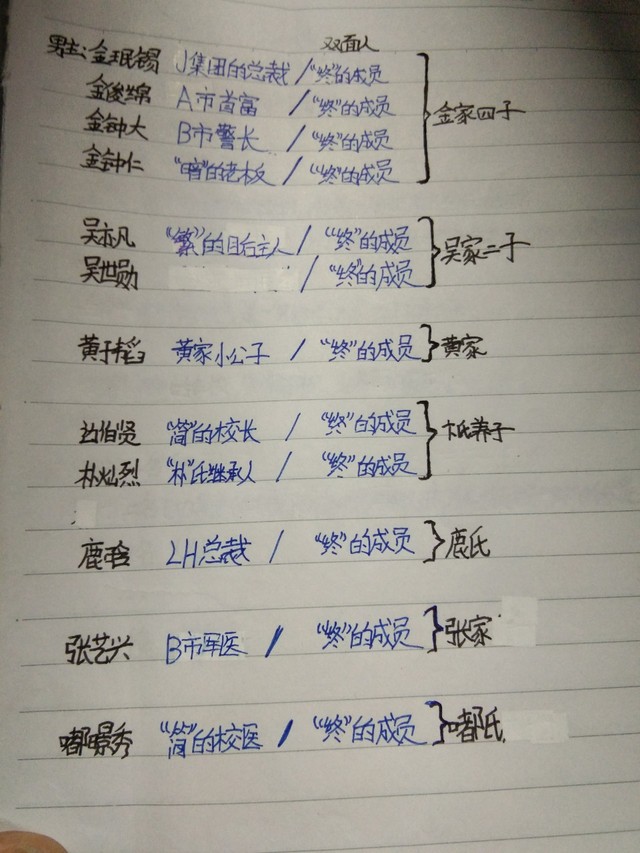 双面人
男主:金珉锡 J集团的总裁/“终”的成员
金俊绵 A市首富 / “终”的成员
金钟大 B市警长 / “终”的成员
金钟仁 “暗”的老板 / “终”的成员
金家四子
吴亦凡 “繁”的目后主人 / “终”的成员
吴世勋 / “终”的成员
吴家二子
黄子韬 黄家小公子 / “终”的成员 黄家
边伯贤 “简”的校长 / “终”的成员
朴灿烈 “朴”氏继承人 / “终”的成员
朴氏养子
鹿晗 LH总裁 / “终”的成员 鹿氏
张艺兴 B市军医 / “终”的成员 张家
嘟暻秀 “简”的校医 / “终”的成员 嘟氏